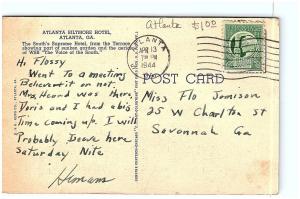 Atlanta $1.00
ATLANTA BILTMORE HOTEL,
ATLANTA, GA.
The South's Supreme Hotel, from the Terrace
showing part of sunken garden and the
of WSB "The Voice of the South."
ATLANTA
APR 13
7 PM
1944
POST CARD
Hi Flossy
Went to a meeting
Believe it or not
Mrs. Heard was there
Doris and I had a big
Time coming up. I will
Probably Leave here
Saturday Nite
Miss Flo Jemison
25 W Charlton St
Savannah Ga